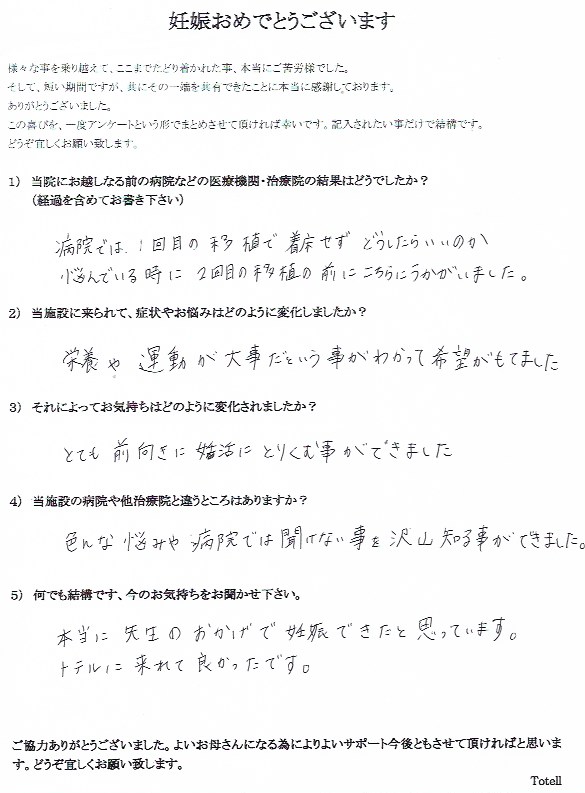 妊娠おめでとうございます
様々な事を乗り越えて、ここまでたどり着かれた事、本当にご苦労様でした。
そして、短い期間ですが、共にその一端を共有できたことに本当に感謝しております。
ありがとうございました。
この喜びを、一度アンケートという形でまとめさせて頂ければ幸いです。記入されたい事だけで結構です。
どうぞ宜しくお願い致します。
1） 当院にお越しなる前の病院などの医療機関・治療院の結果はどうでしたか？
（経過を含めてお書き下さい）
病院では、1回目の移植で着床せず どうしたらいいのか
悩んでいる時に 2回目の移植の前にこちらにうかがいました。
2） 当施設に来られて、症状やお悩みはどのように変化しましたか？
栄養や 運動が大事だという事がわかって希望がもてました
3） それによってお気持ちはどのように変化されましたか？
とても 前向きに 妊活に とりくむ事ができました
4） 当施設の病院や他治療院と違うところはありますか？
色んな悩みや 病院では聞けない事を沢山知る事ができました。
5） 何でも結構です、今のお気持ちをお聞かせ下さい。
本当に 先生の おかげで 妊娠できたと思っています。
トテルに来れて良かったです。
ご協力ありがとうございました。よいお母さんになる為によりよいサポート今後ともさせて頂ければと思いま
す。どうぞ宜しくお願い致します。
Totell